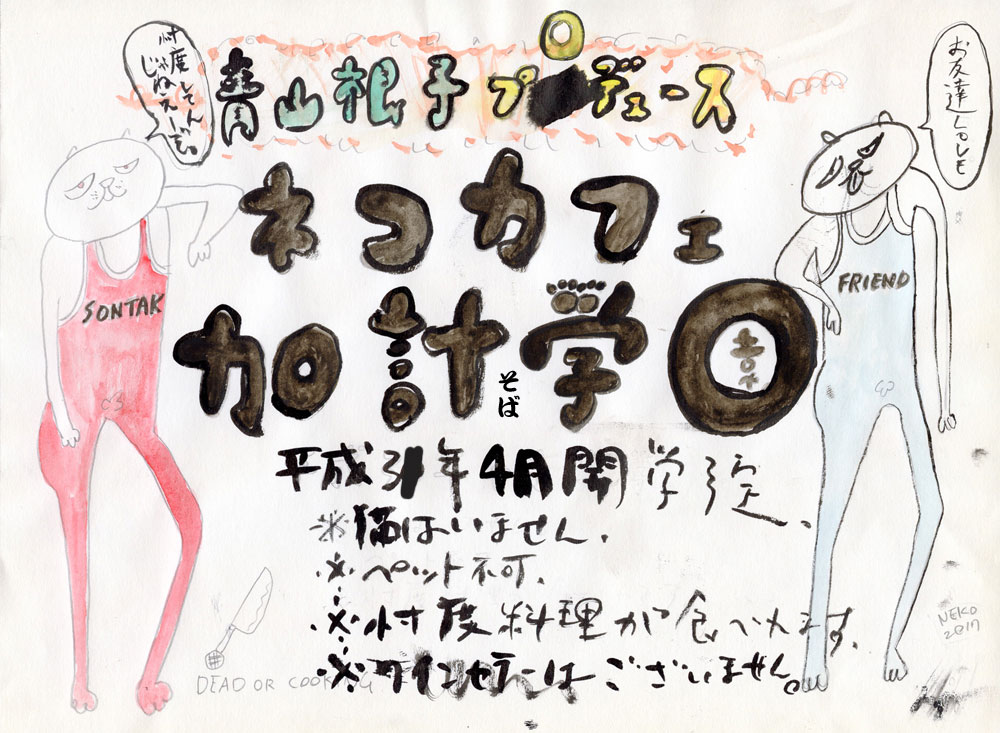 忖度してん
じゃねえーぞ。
青山根子プロデュース
お友達
ネコカフェ
加計学園
そば
SONTAK
FRIEND
平成31年4月開学予定、
※猫はいません.
※ペット不可.
※忖度料理が食べれます.
※ワインセラーはございません。
DEAD OR COOKING
NEKO
2017